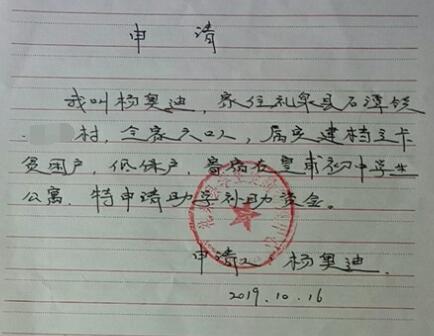 申请
我叫杨奥迪，家住礼泉县石潭镇
村，全家六口人，属实建档立卡
贫困户，低保户，
公寓，特申请助学补助资金。
申请人 杨奥迪
2019.10.16